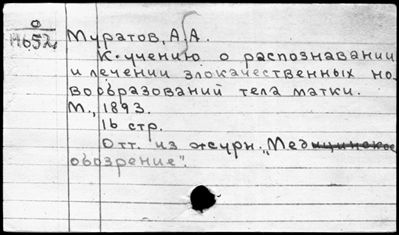 О
М652
Муратов, А.А.
К учению о распознавании
и лечении злокачественных но-
вообразований тела матки.
М., 1893.
16 стр.
Отт. из журн. „Медицинское
обозрение".